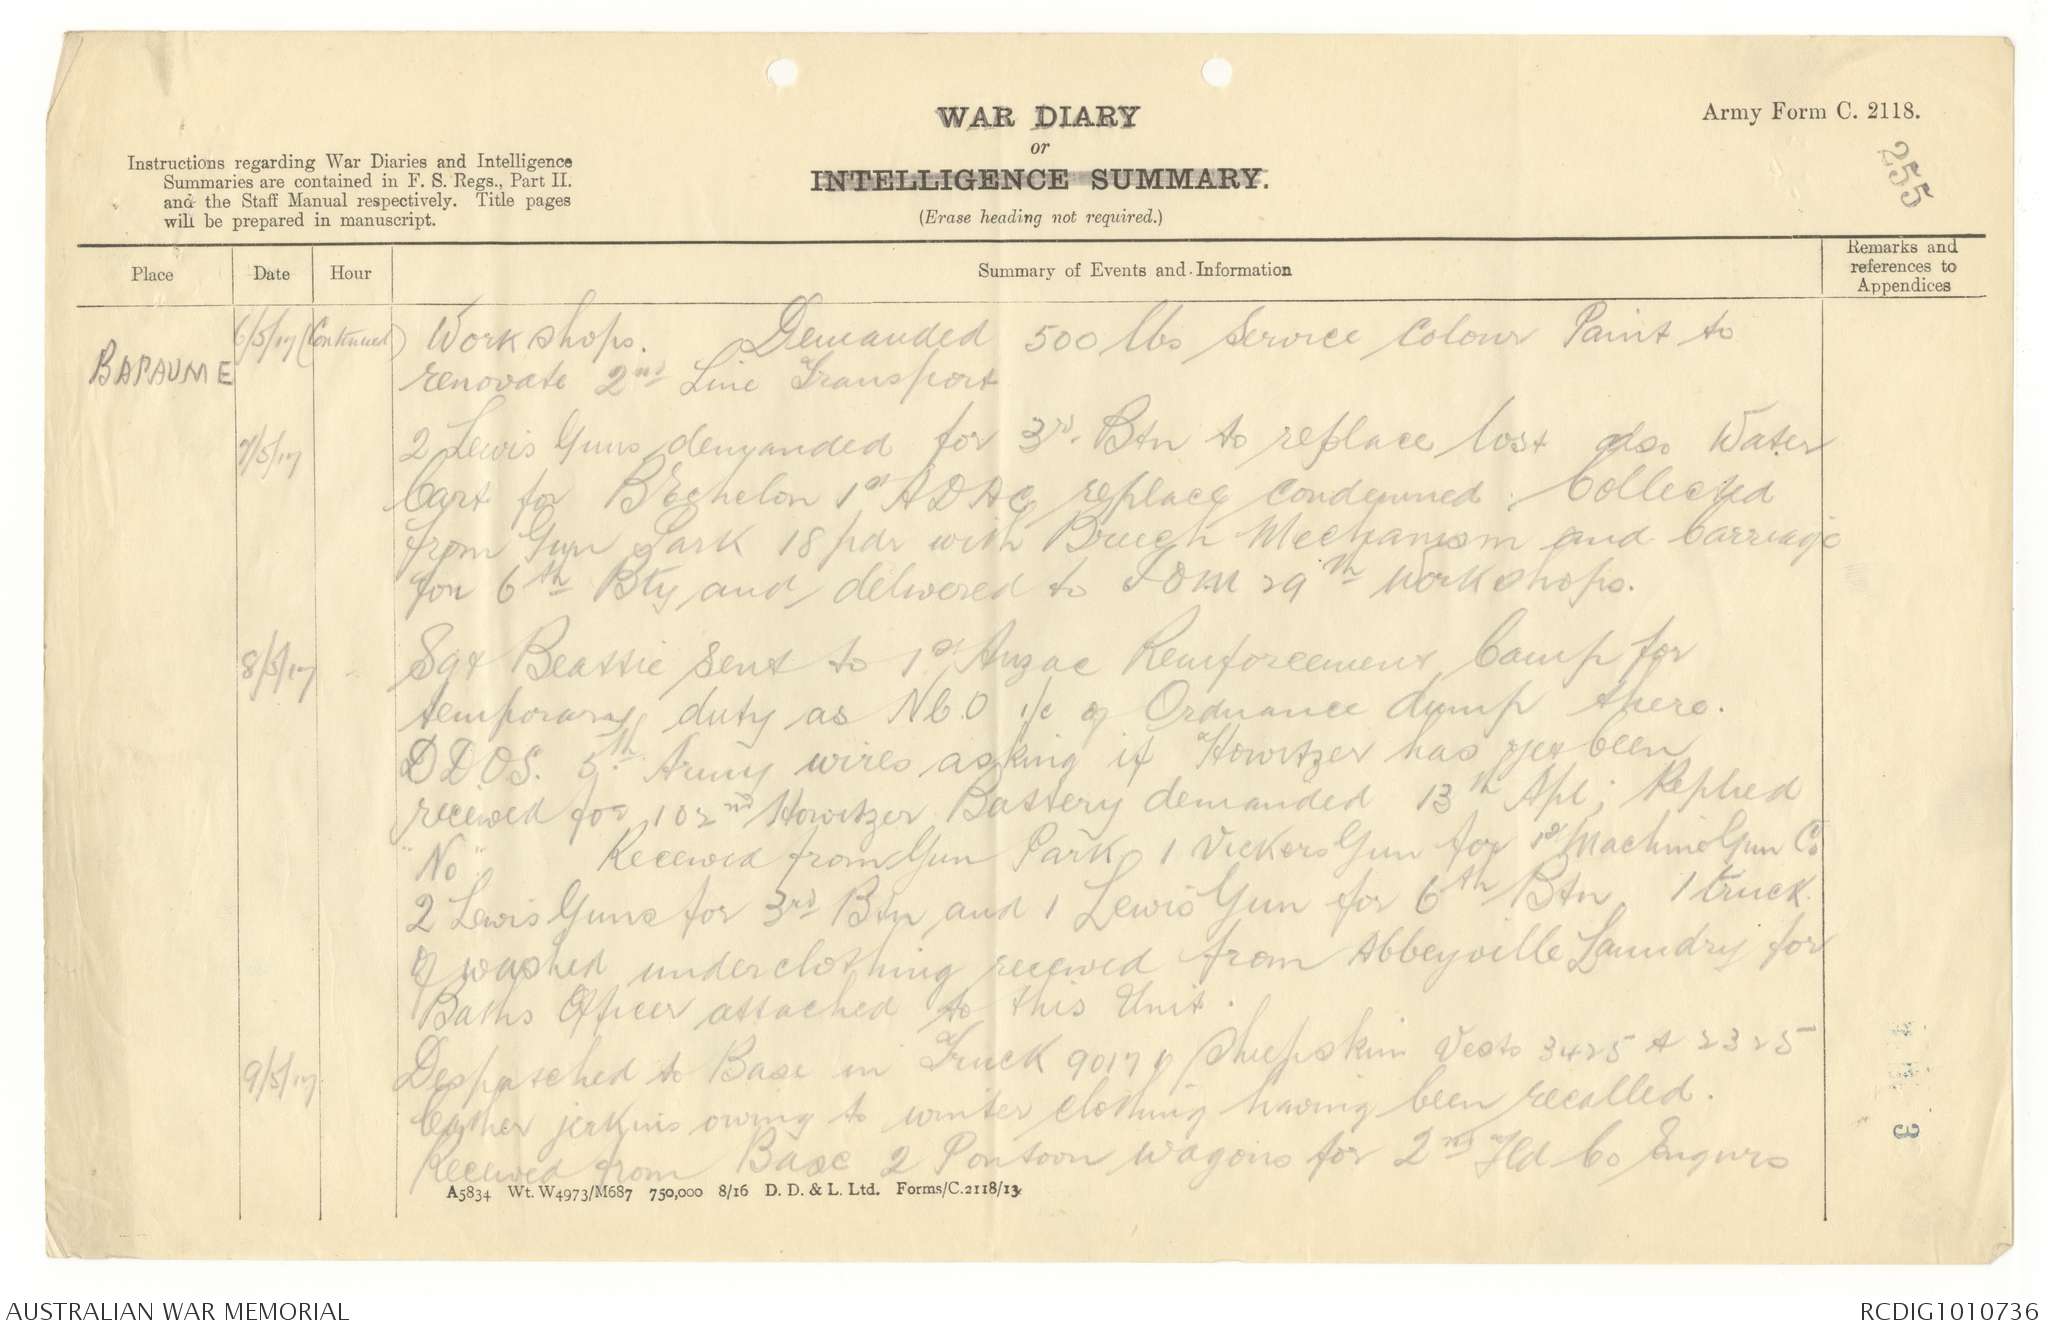 WAR DIARY
or
INTELLIGENCE SUMMARY.
(Erase heading not required.)
Army Form C. 2118.
255
Instructions regarding War Diaries and Intelligence
Summaries are contained in F. S. Regs., Part II.
and the Staff Manual respectively. Title pages
will be prepared in manuscript.
Place
Date
Hour
Summary of Events and Information
Remarks and
references to
Appendices
BAPAUME
6/5/17 (Continued) Workshops. Demanded 500 lbs Service Colour Paint to
renovate 2nd Line Transport
7/5/17 2 Lewis Guns demanded for 3rd Btn to replace lost also Water
Cart for B Echelon 1st ADAC replace condemned. Collected
from Gun Park 18 pdr with Breech Mechanism and Carriage
for 6th Bty and delivered to IOM 29th Workshops.
8/5/17 Sgt Beattie sent to 1st Anzac Reinforcement Camp for
temporary duty as NCO i/c of Ordnance dump there.
DDOS. 5th Army wires asking if Howitzer has yet been
received for 102nd Howitzer Battery demanded 13th Apl; Replied
"No" Received from Gun Park 1 Vickers Gun for 1st Machine Gun Co
2 Lewis Guns for 3rd Btn and 1 Lewis Gun for 6th Btn 1 truck
of washed underclothing received from Abbeyville Laundry for
Baths Officer attached to this Unit.
9/5/17 Despatched to Base in Truck 9017 Sheepskin Vests 3425 & 2325
leather jerkins owing to winter clothing having been recalled.
Received from Base 2 Pontoon wagons for 2nd Fld Co Engnrs
A5834 Wt. W4973/M687 750,000 8/16 D. D. & L. Ltd. Forms/C.2118/13
3
AUSTRALIAN WAR MEMORIAL
RCDIG1010736